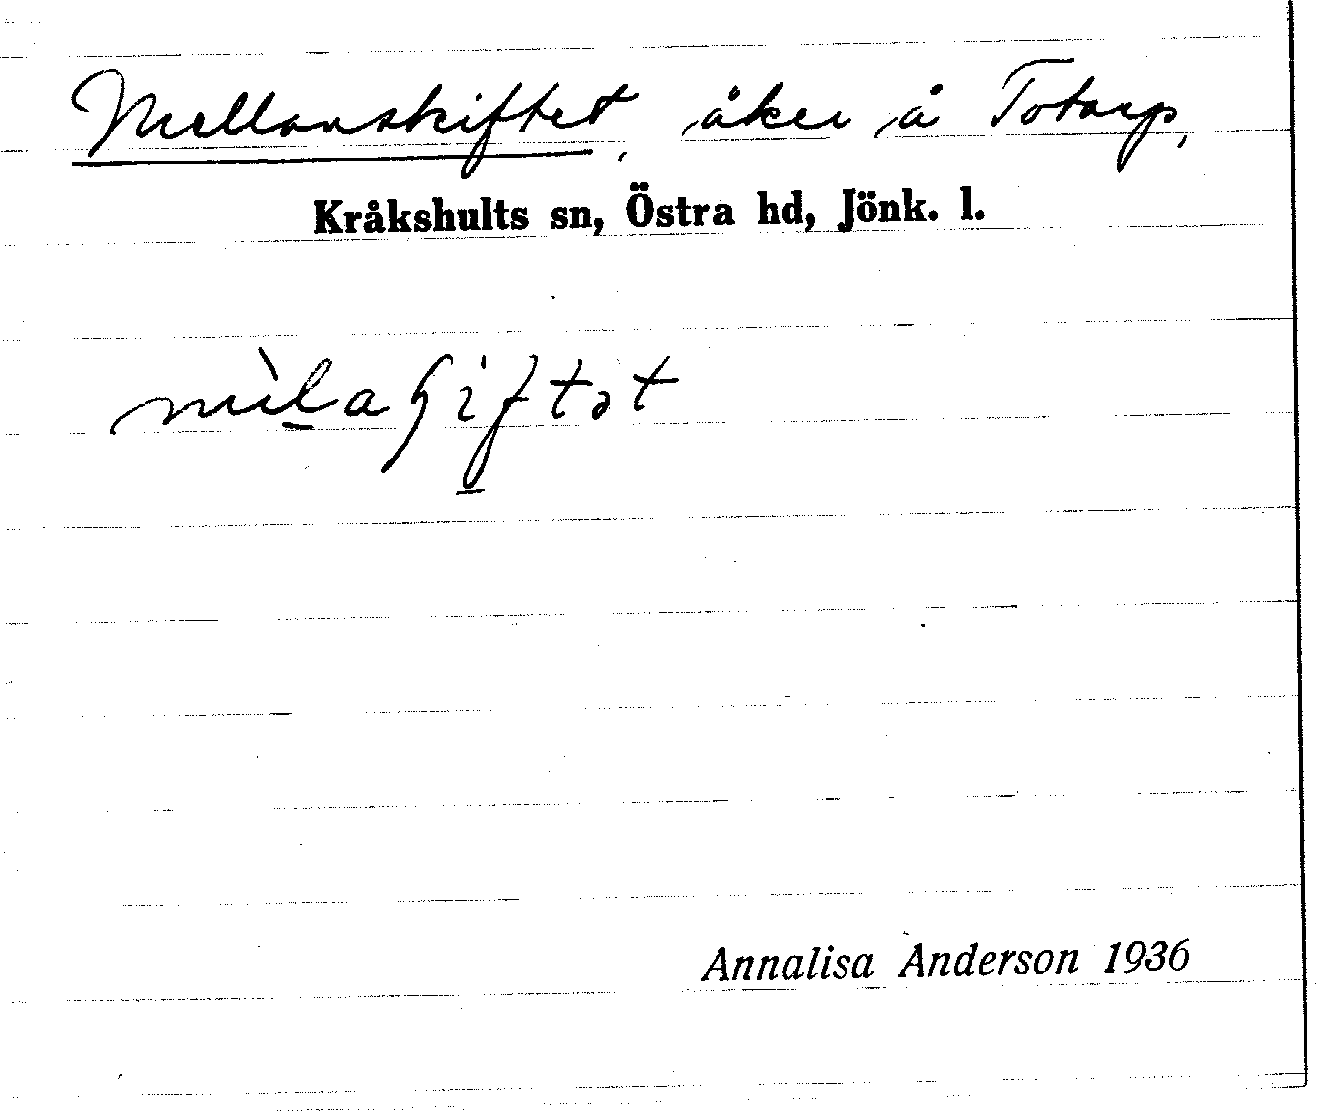 Mellanskiftet, åker å Totarp,
Kråkshults sn, Östra hd, Jönk. l.
Annalisa Anderson 1936